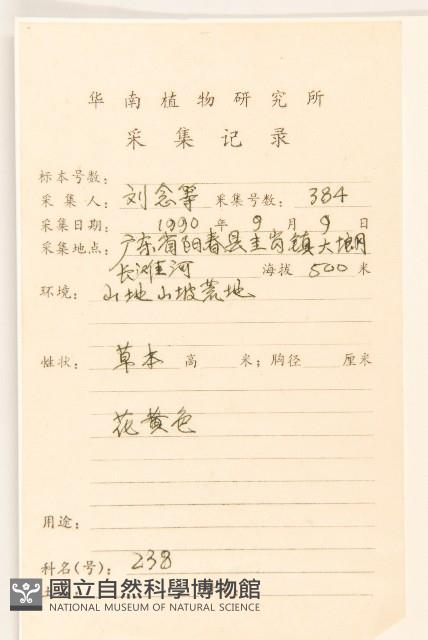 华南植物研究所
采集记录
标本号数:
采集人: 刘念等 采集号数: 384
采集日期: 1990 年 9 月 9 日
采集地点: 广东省阳春县圭岗镇大垌
长滩河 海拔 500 米
环境: 山地山坡荒地
性状: 草本 高 米; 胸径 厘米
花黄色
用途:
科名(号): 238
國立自然科學博物館
NATIONAL MUSEUM OF NATURAL SCIENCE